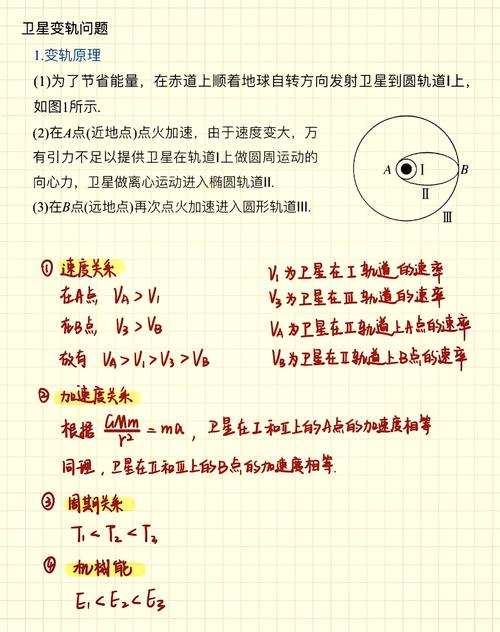 卫星变轨问题
1.变轨原理
(1)为了节省能量，在赤道上顺着地球自转方向发射卫星到圆轨道Ⅰ上，
如图1所示.
(2)在A点(近地点)点火加速，由于速度变大，万
有引力不足以提供卫星在轨道Ⅰ上做圆周运动的
向心力，卫星做离心运动进入椭圆轨道Ⅱ.
(3)在B点(远地点)再次点火加速进入圆形轨道Ⅲ.
A Ⅰ B
Ⅱ
Ⅲ
① 速度关系
在A点，VA>V1
在B点，V3>VB
故有 VA>V1>V3>VB
V1为卫星在Ⅰ轨道的速率
V3为卫星在Ⅲ轨道的速率
VA为卫星在Ⅱ轨道上A点的速率
VB为卫星在Ⅱ轨道上B点的速率
② 加速度关系
根据 GMm/r² = ma，卫星在Ⅰ和Ⅱ上的A点的加速度相等
同理，卫星在Ⅱ和Ⅲ上的B点的加速度相等.
③ 周期关系
T1<T2<T3
④ 机械能
E1<E2<E3